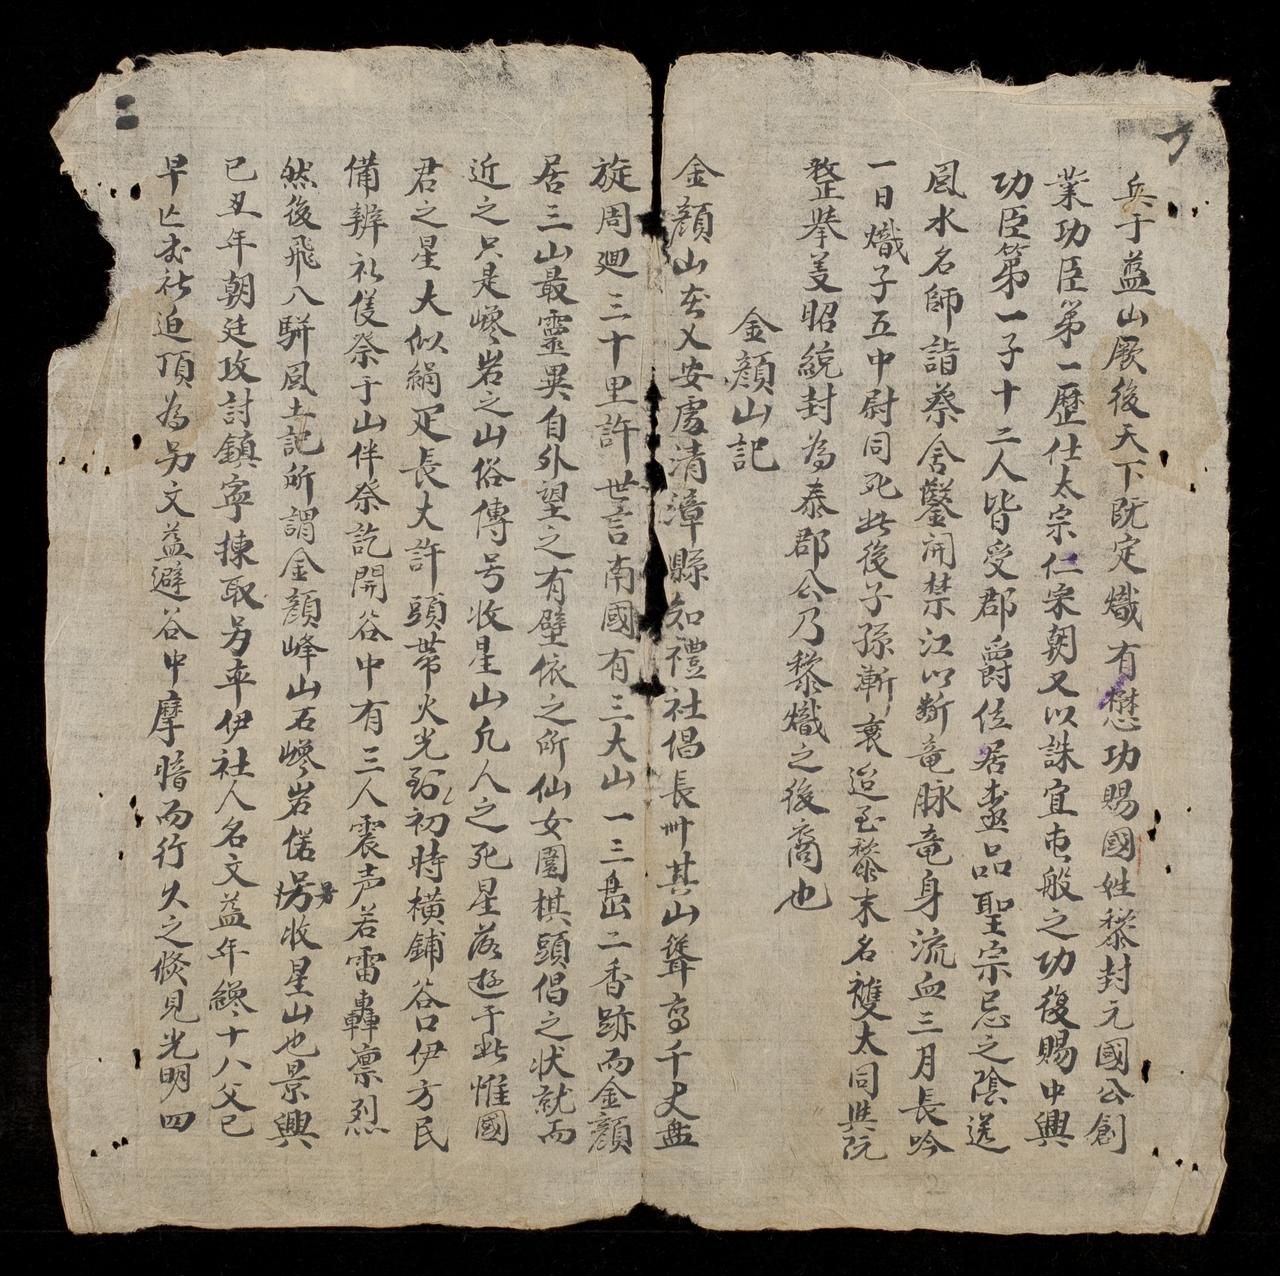 兵于藍山厥後天下既定熾有懋功賜國姓黎封元國公創
業功臣第一歷仕太宗仁宗朝又以誅宜屯般之功復賜中興
功臣第一子十二人皆受郡爵位居壹品聖宗忌之陰送
風水名師詣蔡舍鑿開禁江以斷竜脉竜身流血三月長吟
一日熾子五中尉同死此後子孫漸衰迨至黎末名雙太同與阮
整舉義昭統封為泰郡公乃黎熾之後裔也
金顔山記
金顔山在乂安處清漳縣知禮社倡長卅其山聳高千丈盤
旋周廻三十里許世言南國有三大山一三島二香跡而金顔
居三山最靈異自外望之有壁依之所仙女圍棋頭倡之状就而
近之只是巉岩之山俗傳号收星山凢人之死星落逰于此惟國
君之星大似絹疋長大許頭帶火光到初時橫鋪谷口伊方民
備辨礼儀祭于山伴祭訖開谷中有三人震声若雷轟凛烈
然後飛入駢風土記所謂金顔峰山石巉岩偌收星山也景興
己丑年朝廷攻討鎮寧揀取另率伊社人名文益年纔十八父已
早亡社迫頂為另文益避谷中摩暗而行久之倐見光明四
二